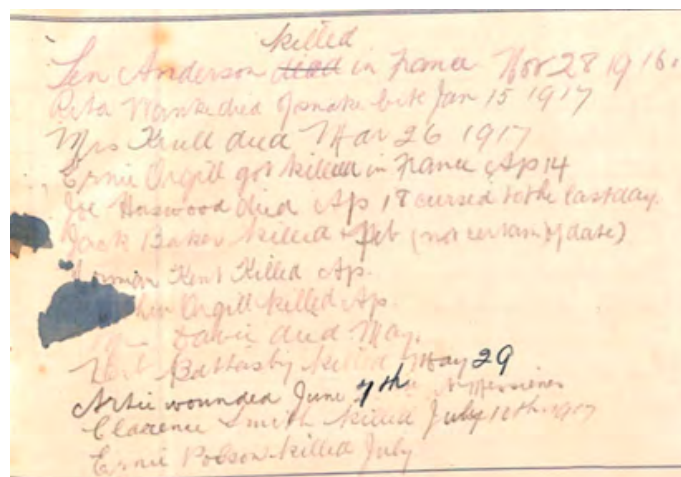 killed
Len Anderson died in France Nov 28 1916.
Rita Wanke died of snake bite Jan 15 1917
Mrs Krull died Mar 26 1917
Ernie Orgill got killed in France Ap 14
Joe Haswood died Ap 18 cursed to the last day.
Jack Baker killed Feb (not certain of date)
Norman Kent Killed Ap.
Orgill killed Ap.
Davie died May.
Battasby killed May 29
Artie wounded June 7th Messines
Clarence Smith killed July 10th 1917
Ernie Polson killed July